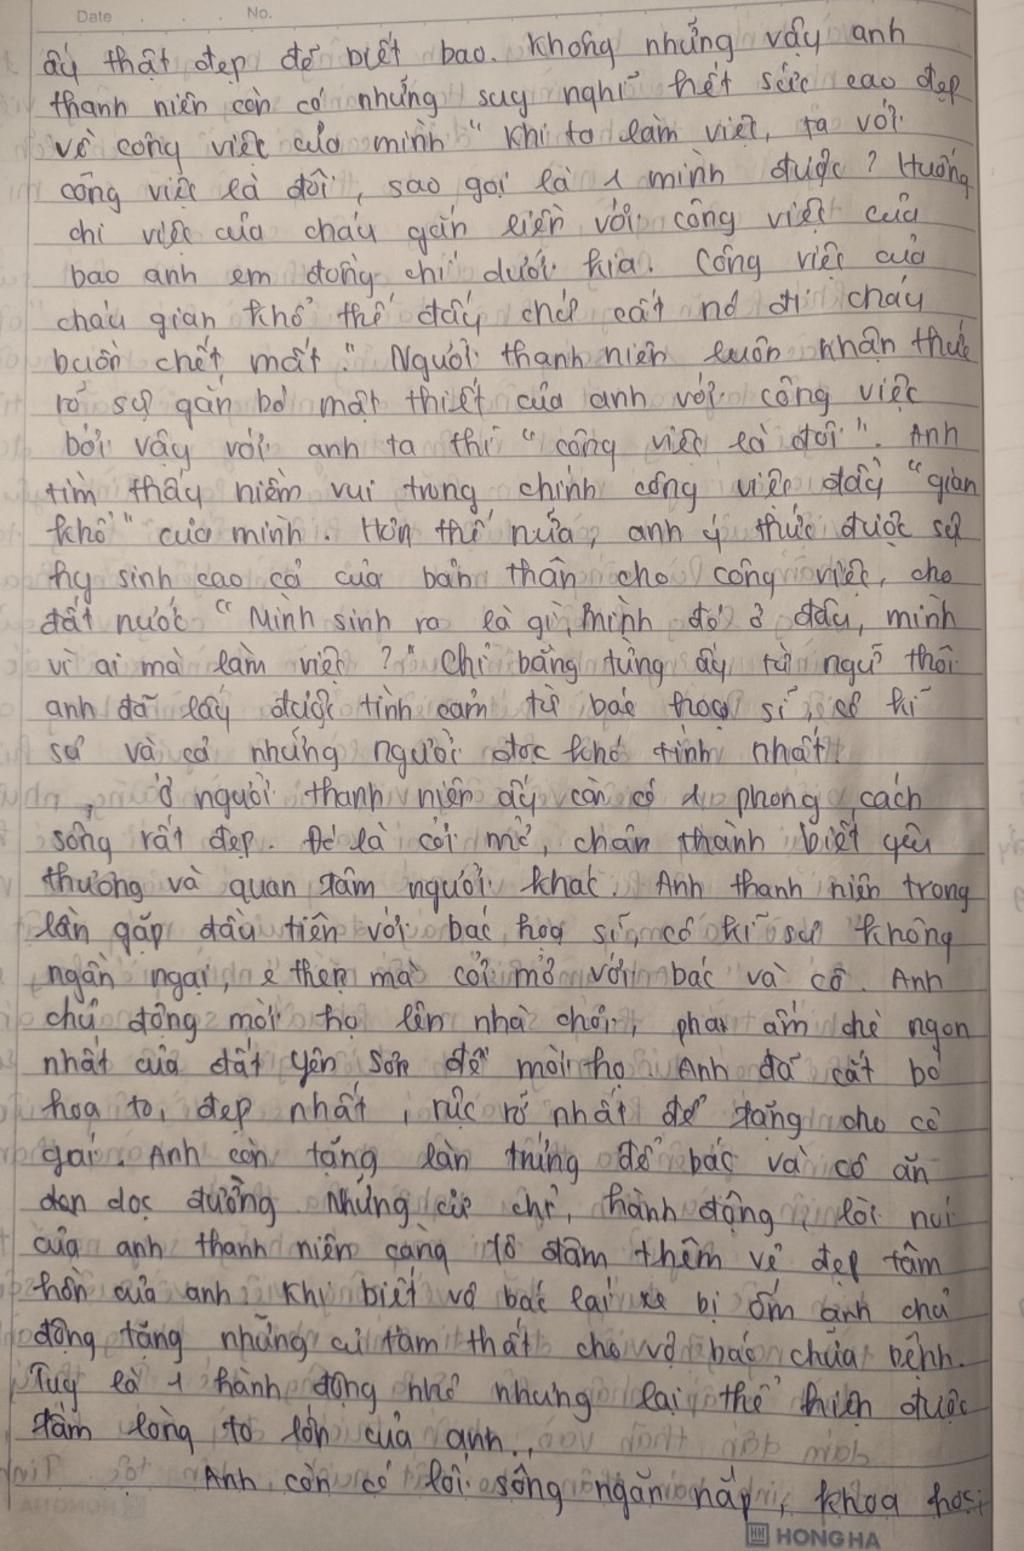 Date No.
ấy thật đẹp đẽ biết bao. Không những vậy anh
thanh niên còn có những suy nghĩ hết sức cao đẹp
về công việc của mình "Khi ta làm việc, ta với
công việc là đôi, sao gọi là 1 mình được? Huống
chi việc của cháu gắn liền với công việc của
bao anh em đồng chí dưới kia. Công việc của
cháu gian khổ thế đấy chứ cất nó đi cháu
buồn chết mất." Người thanh niên luôn nhận thức
rõ sự gắn bó mật thiết của anh với công việc
bởi vậy với anh ta thì "công việc là đôi". Anh
tìm thấy niềm vui trong chính công việc đầy "gian
khổ" của mình. Hơn thế nữa, anh ý thức được sự
hy sinh cao cả của bản thân cho công việc, cho
đất nước "Mình sinh ra là gì, mình đẻ ở đâu, mình
vì ai mà làm việc?" Chỉ bằng từng ấy từ ngữ thôi
anh đã lấy được tình cảm từ bác hoạ sĩ, cô kĩ
sư và cả những người đọc khó tính nhất.
Ở người thanh niên ấy còn có 1 phong cách
sống rất đẹp. Đó là cởi mở, chân thành biết yêu
thương và quan tâm người khác. Anh thanh niên trong
lần gặp đầu tiên với bác hoạ sĩ, cô kĩ sư không
ngần ngại, e thẹn mà cởi mở với bác và cô. Anh
chủ động mời họ lên nhà chơi, pha ấm chè ngon
nhất của đất Yên Sơn để mời họ. Anh đã cắt bó
hoa to, đẹp nhất, rực rỡ nhất để tặng cho cô
gái. Anh còn tặng làn trứng để bác và cô ăn
dọc đường. Những cử chỉ, hành động, lời nói
của anh thanh niên càng tô đậm thêm vẻ đẹp tâm
hồn của anh. Khi biết vợ bác lái xe bị ốm anh chủ
động tặng những củ tam thất cho vợ bác chữa bệnh.
Tuy là 1 hành động nhỏ nhưng lại thể hiện được
tấm lòng to lớn của anh.
Anh còn có lối sống ngăn nắp, khoa học,
HONG HA